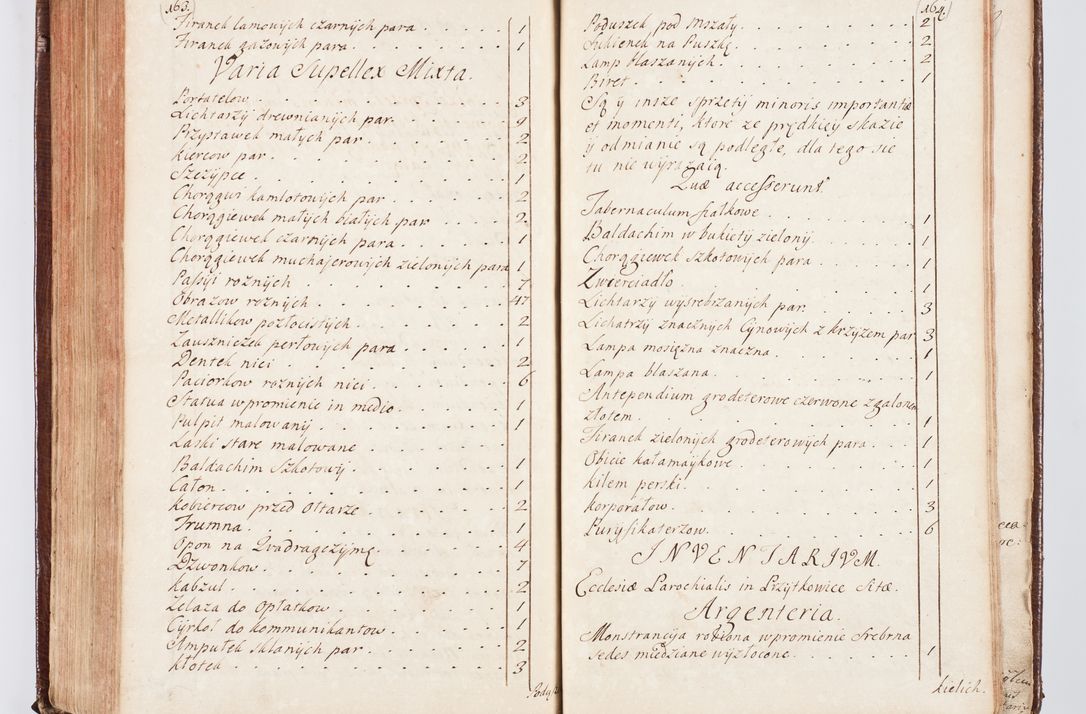 163.
Firanek lamowych czarnych para 1
Firanek gazowych para 1
Varia Supellex Mixta.
Portatelow 3
Lichtarzy drewnianych par 9
Przystawek małych par 2
kiercow par 2
Szczypce 1
Chorągwi kamlotowych par 2
Chorągiewek małych białych par 2
Chorągiewek czarnych para 1
Chorągiewek muchajerowych zielonych para 1
Passyi roznych 7
Obrazow roznych 47
Metallikow pozłocistych 2
Zauszniczek perłowych para 1
Dentek nici 2
Paciorkow roznych nici 6
Statua w promienie in medio 1
Pulpit malowany 1
Laski stare malowane
Baldachim Szkotowy 1
Całon 1
Kobiercow przed Ołtarze 2
Trumna 1
Opon na Quadragezymę 4
Dzwonkow 7
kabzul 2
Zelaza do Opłatkow 1
Cyrkoł do kommunikantow 1
Ampułek sklanych par 2
kłotek 3
164.
Poduszek pod mszały 2
Sukienek na Puszkę 2
Lamp blaszanych 2
Biret 1
Są y insze sprzęty minoris importantiæ
et momenti, ktore ze prędkiey skazie
y odmianie są podległe, dla tego sie
tu nie wyrażaią.
Quæ accesserunt
Tabernaculum fiałkowe 1
Baldachim w bukiety zielony 1
Chorągiewek szkotowych para 1
Zwierciadło 1
Lichtarzy wysrebrzanych par 3
Lichatrzy znacznych Cynowych z krzyzem par 3
Lampa mosięzna znaczna 1
Lampa blaszana 1
Antependium grodeterowe czerwone z galonem
złotem 1
Firanek zielonych grodeterowych para 1
Obicie kałamaykowe 1
kilem perski 1
korporałow 3
Puryfikaterzow 6
INVENTARIVM.
Ecclesiæ Parochialis in Przytkowice Sitæ.
Argenteria.
Monstrancyja robiona w promienie Srebrna
sedes miedziane wyzłocone 1
kielich.